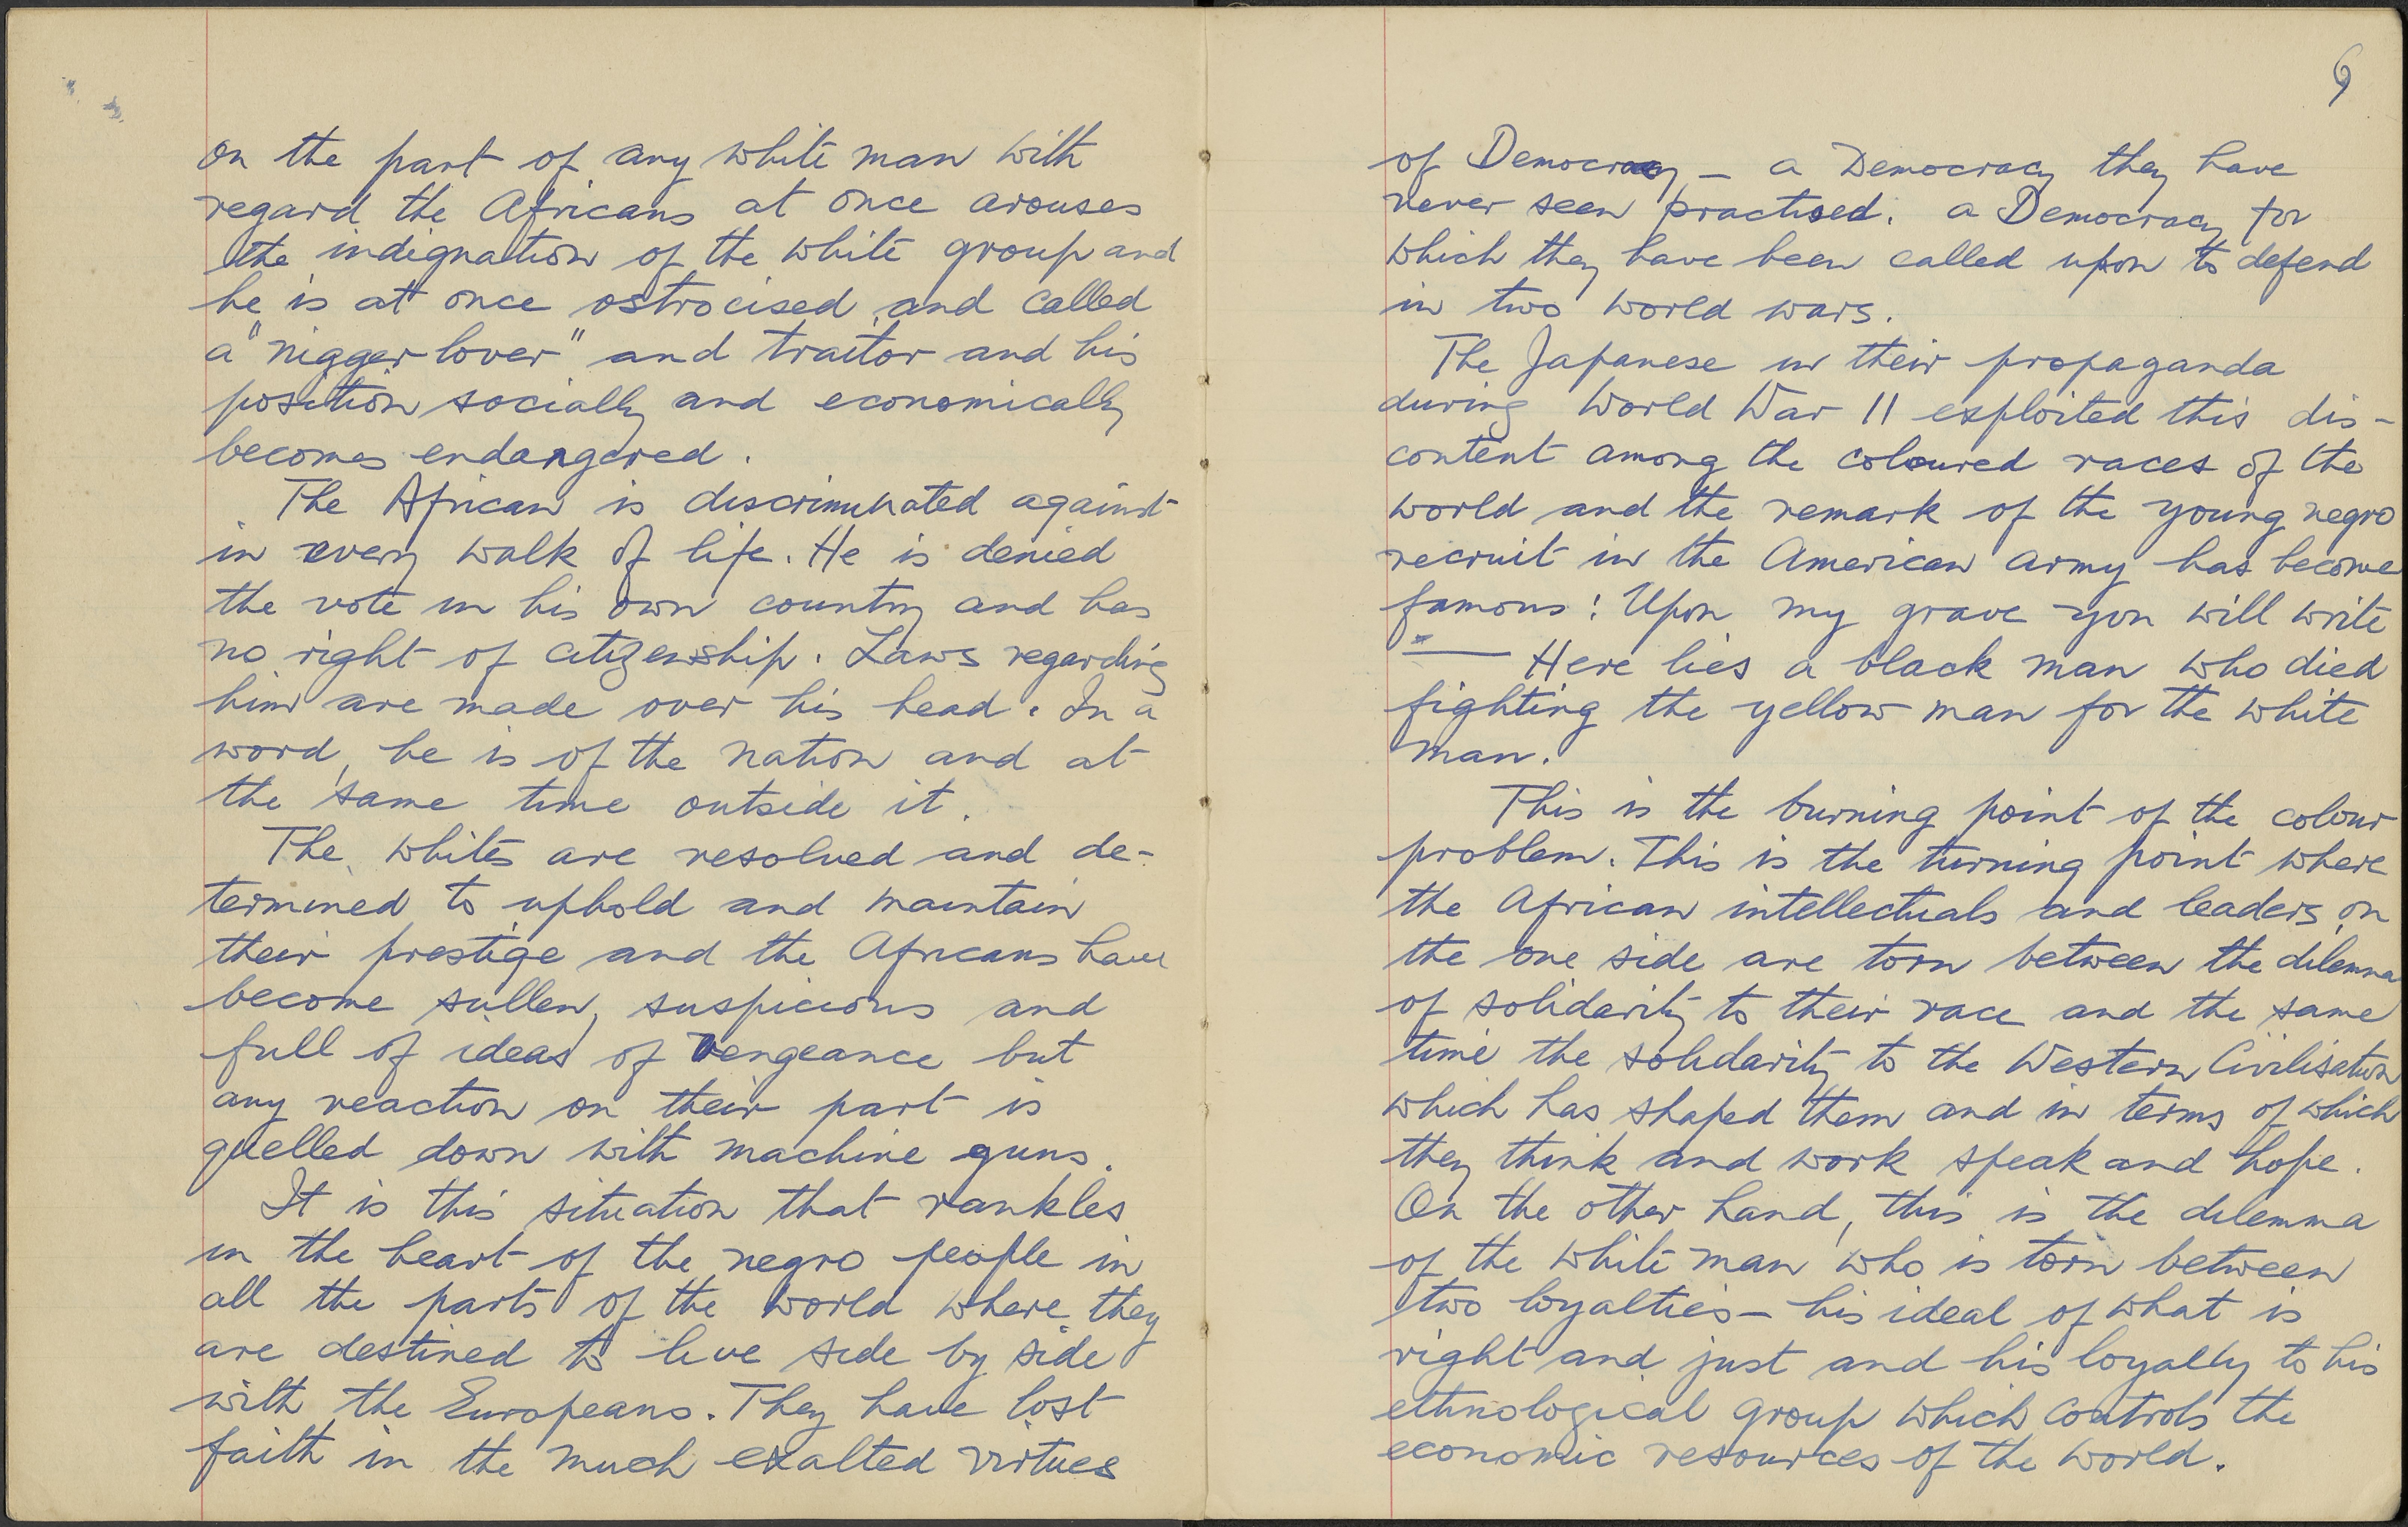 on the part of any white man with
regard the Africans at once arouses
the indignation of the white group and
he is at once ostrocised and called
a "nigger lover" and traitor and his
position socially and economically
becomes endangered.
The African is discriminated against
in every walk of life. He is denied
the vote in his own country and has
no right of citizenship. Laws regarding
him are made over his head. In a
word, he is of the nation and at
the same time outside it.
The whites are resolved and de-
termined to uphold and maintain
their prestige and the Africans have
become sullen, suspicious and
full of ideas of vengeance but
any reaction on their part is
quelled down with machine guns.
It is this situation that rankles
in the heart of the negro people in
all the parts of the world where they
are destined to live side by side
with the Europeans. They have lost
faith in the much exalted virtues
6
of Democracy – a Democracy they have
never seen practised. a Democracy for
which they have been called upon to defend
in two world wars.
The Japanese in their propaganda
during World War 11 exploited this dis-
content among the coloured races of the
world and the remark of the young negro
recruit in the American army has become
famous: Upon my grave you will write
— Here lies a black man who died
fighting the yellow man for the white
man.
This is the burning point of the colour
problem. This is the turning point where
the African intellectuals and leaders, on
the one side are torn between the dilemma
of solidarity to their race and the same
time the solidarity to the Western Civilisation
which has shaped them and in terms of which
they think and work speak and hope.
On the other hand, this is the dilemma
of the white man who is torn between
two loyalties – his ideal of what is
right and just and his loyalty to his
ethnological group which controls the
economic resources of the world.